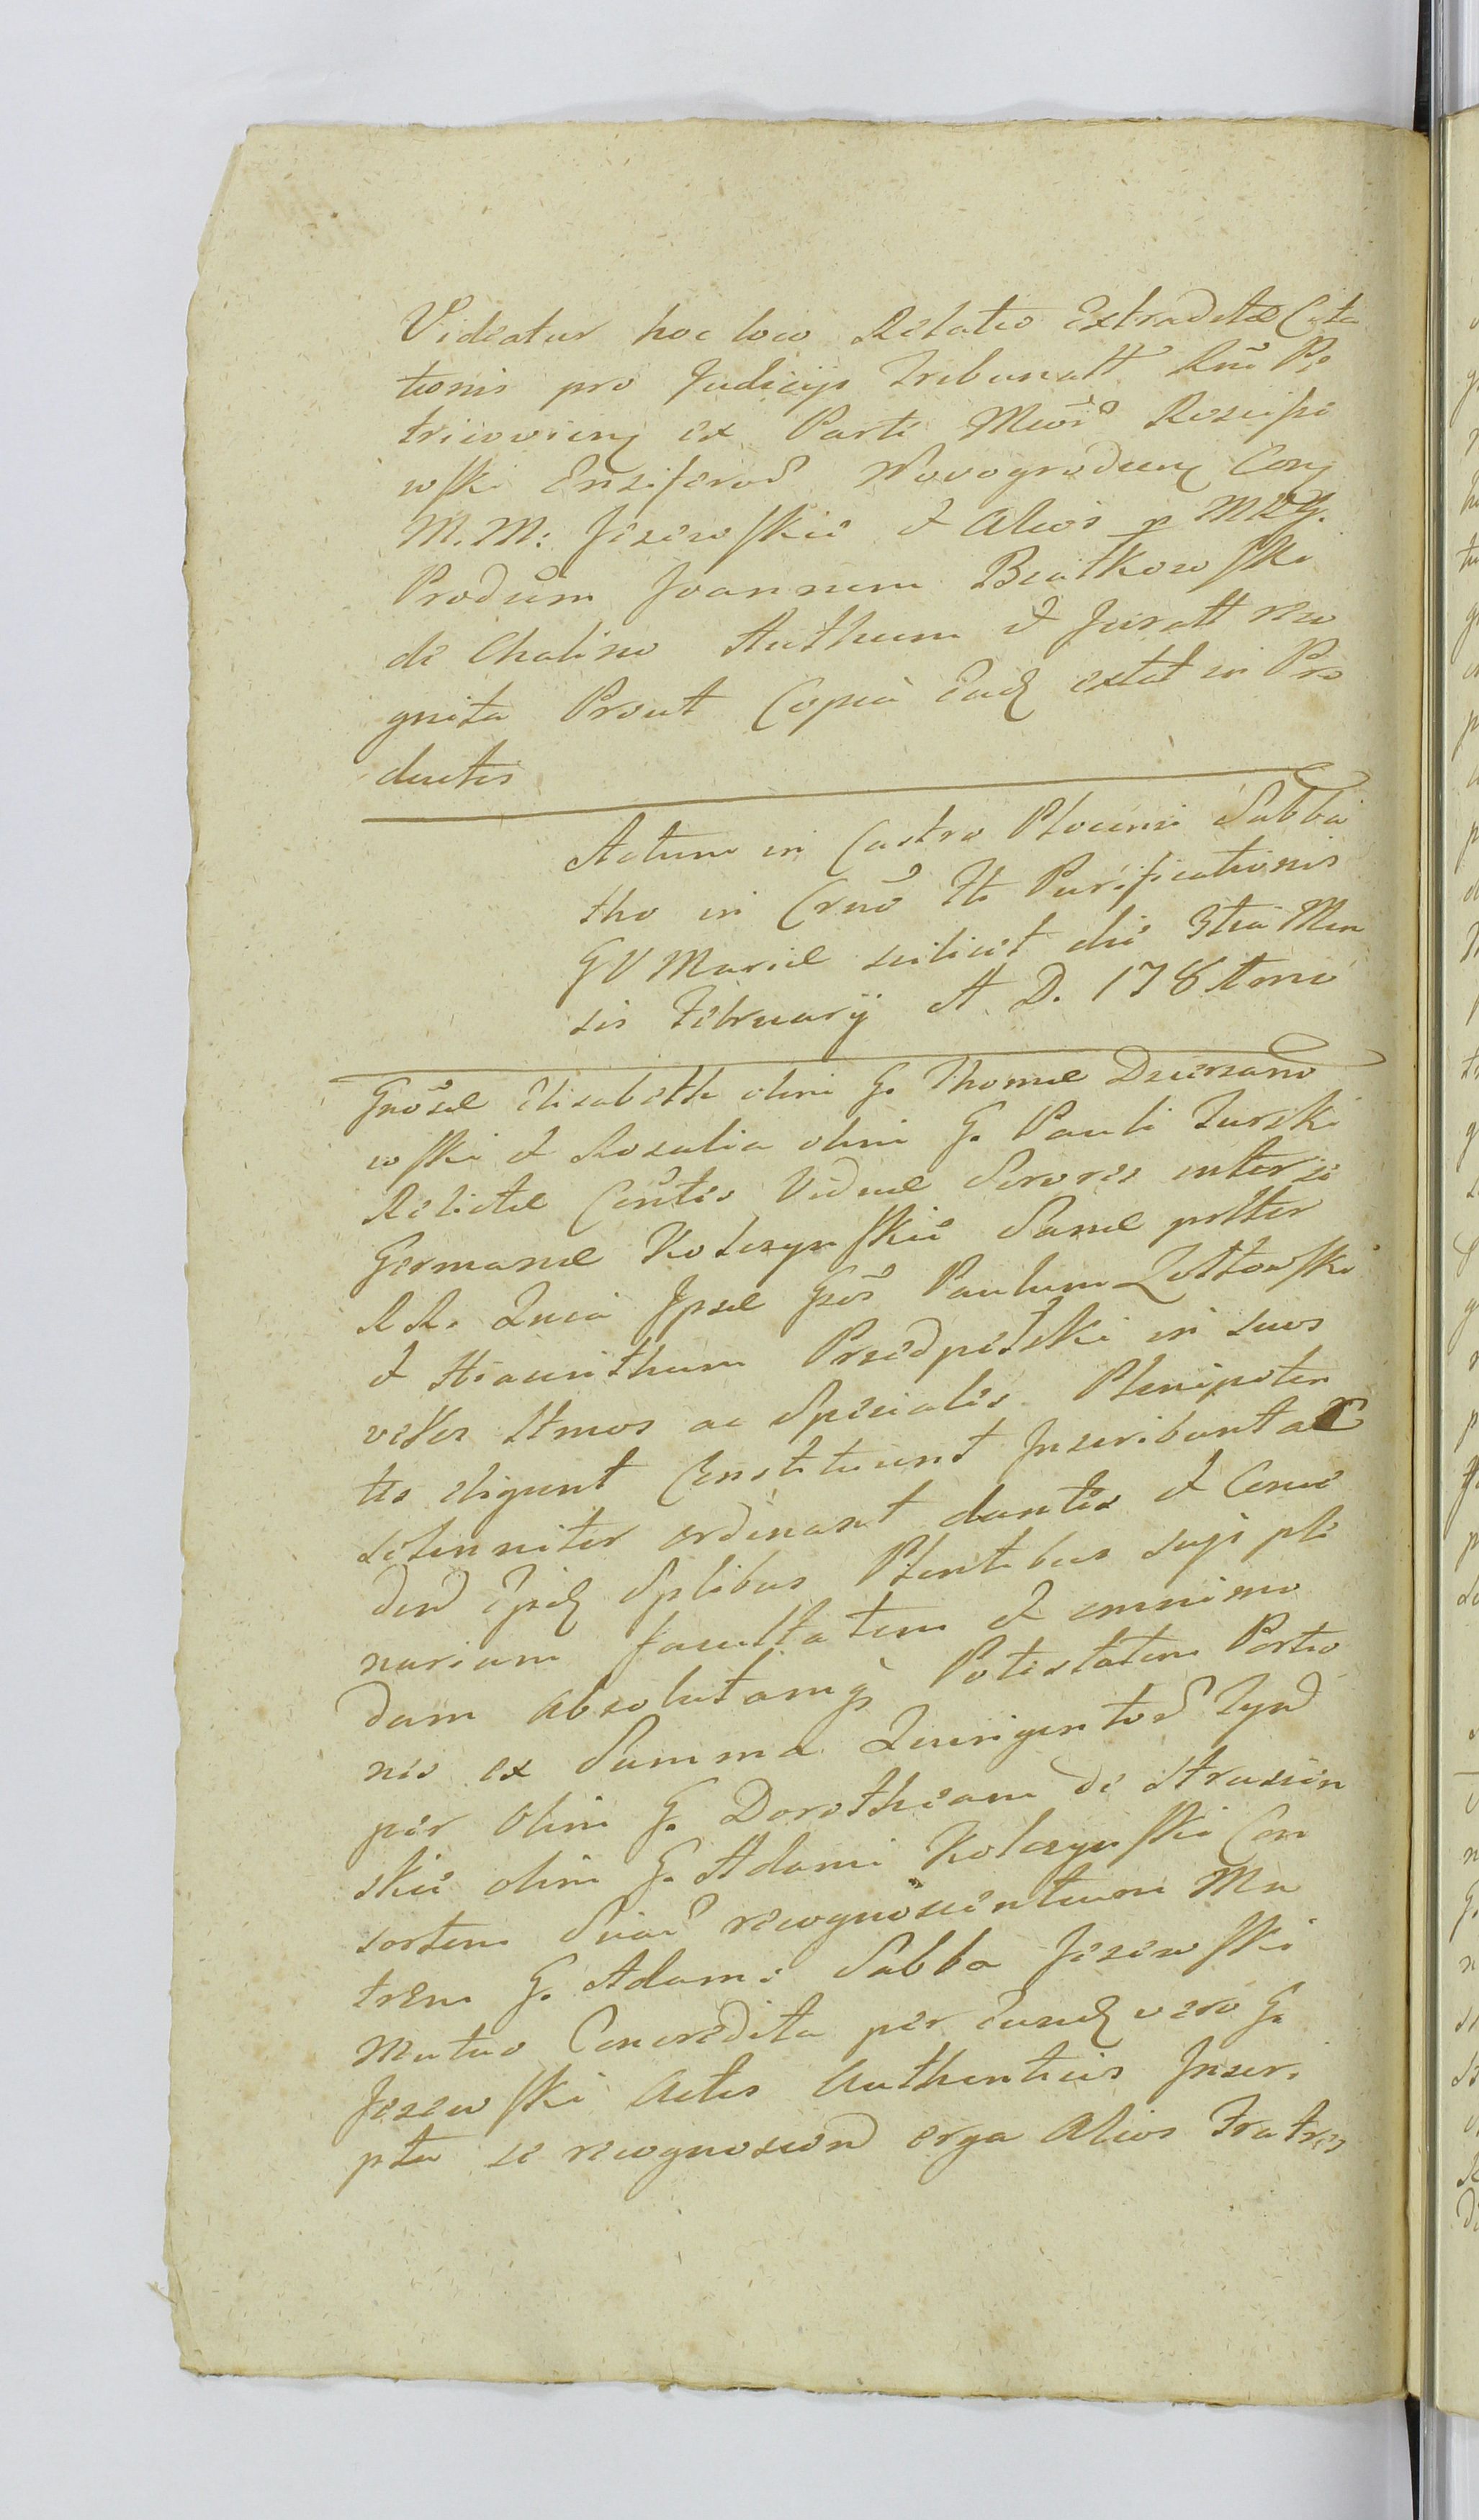 Videatur hoc loco Relatio Extraditæ Cita
tionis pro Judicijs Tribunatt Rni Pe
tricovien ex Parte Rościsze
wski Ensiferod Novogroduen Conj
M. M. Jeżewskie et Alios p MRG.
Prodūm Joannem Białkowski
de Chalino Authum et Juratt reco
gnita Prout Copia Ead extat in Pro
ductis
Actum in Castro Plocensi Sabba
tho in Crno fti Purificationis
GV Mariæ scilicet die 3tia Men
sis February A. D. 178
Gnosæ Elisabeth olim G. Thomæ Dzierzano
wski et Rosalia olim G. Pauli Turski
Relictæ Contes Viduæ Sorores inter se
Germanæ Kolczynskie Sanæ pntter
RR. Quia Ipsæ Gos Paulum Zółtowski
et Hiacinthum Przedpełski in suos
veros ltmos ac Speciales Plenipoten
tes eligunt Constituunt Inscribunt ac
solenniter ordinant dantes et Conce
den Ipsis Splibus Plentibus suis ple
nariam facultatem et omnimo
dam absolutamq Potestatem Portio
nes ex Summa Quingentor Tynf
per Olim G. Dorotheam de
skie olim G. Adami Kolczynski Con
sortem Suar recognoscentium Ma
trem G. Adamo Sabba Jeżewski
Mutuo Concredita per Eund vero G.
Jeżewski Actis Authenticis Inscri
pta se recognoscend erga Alios Fratres